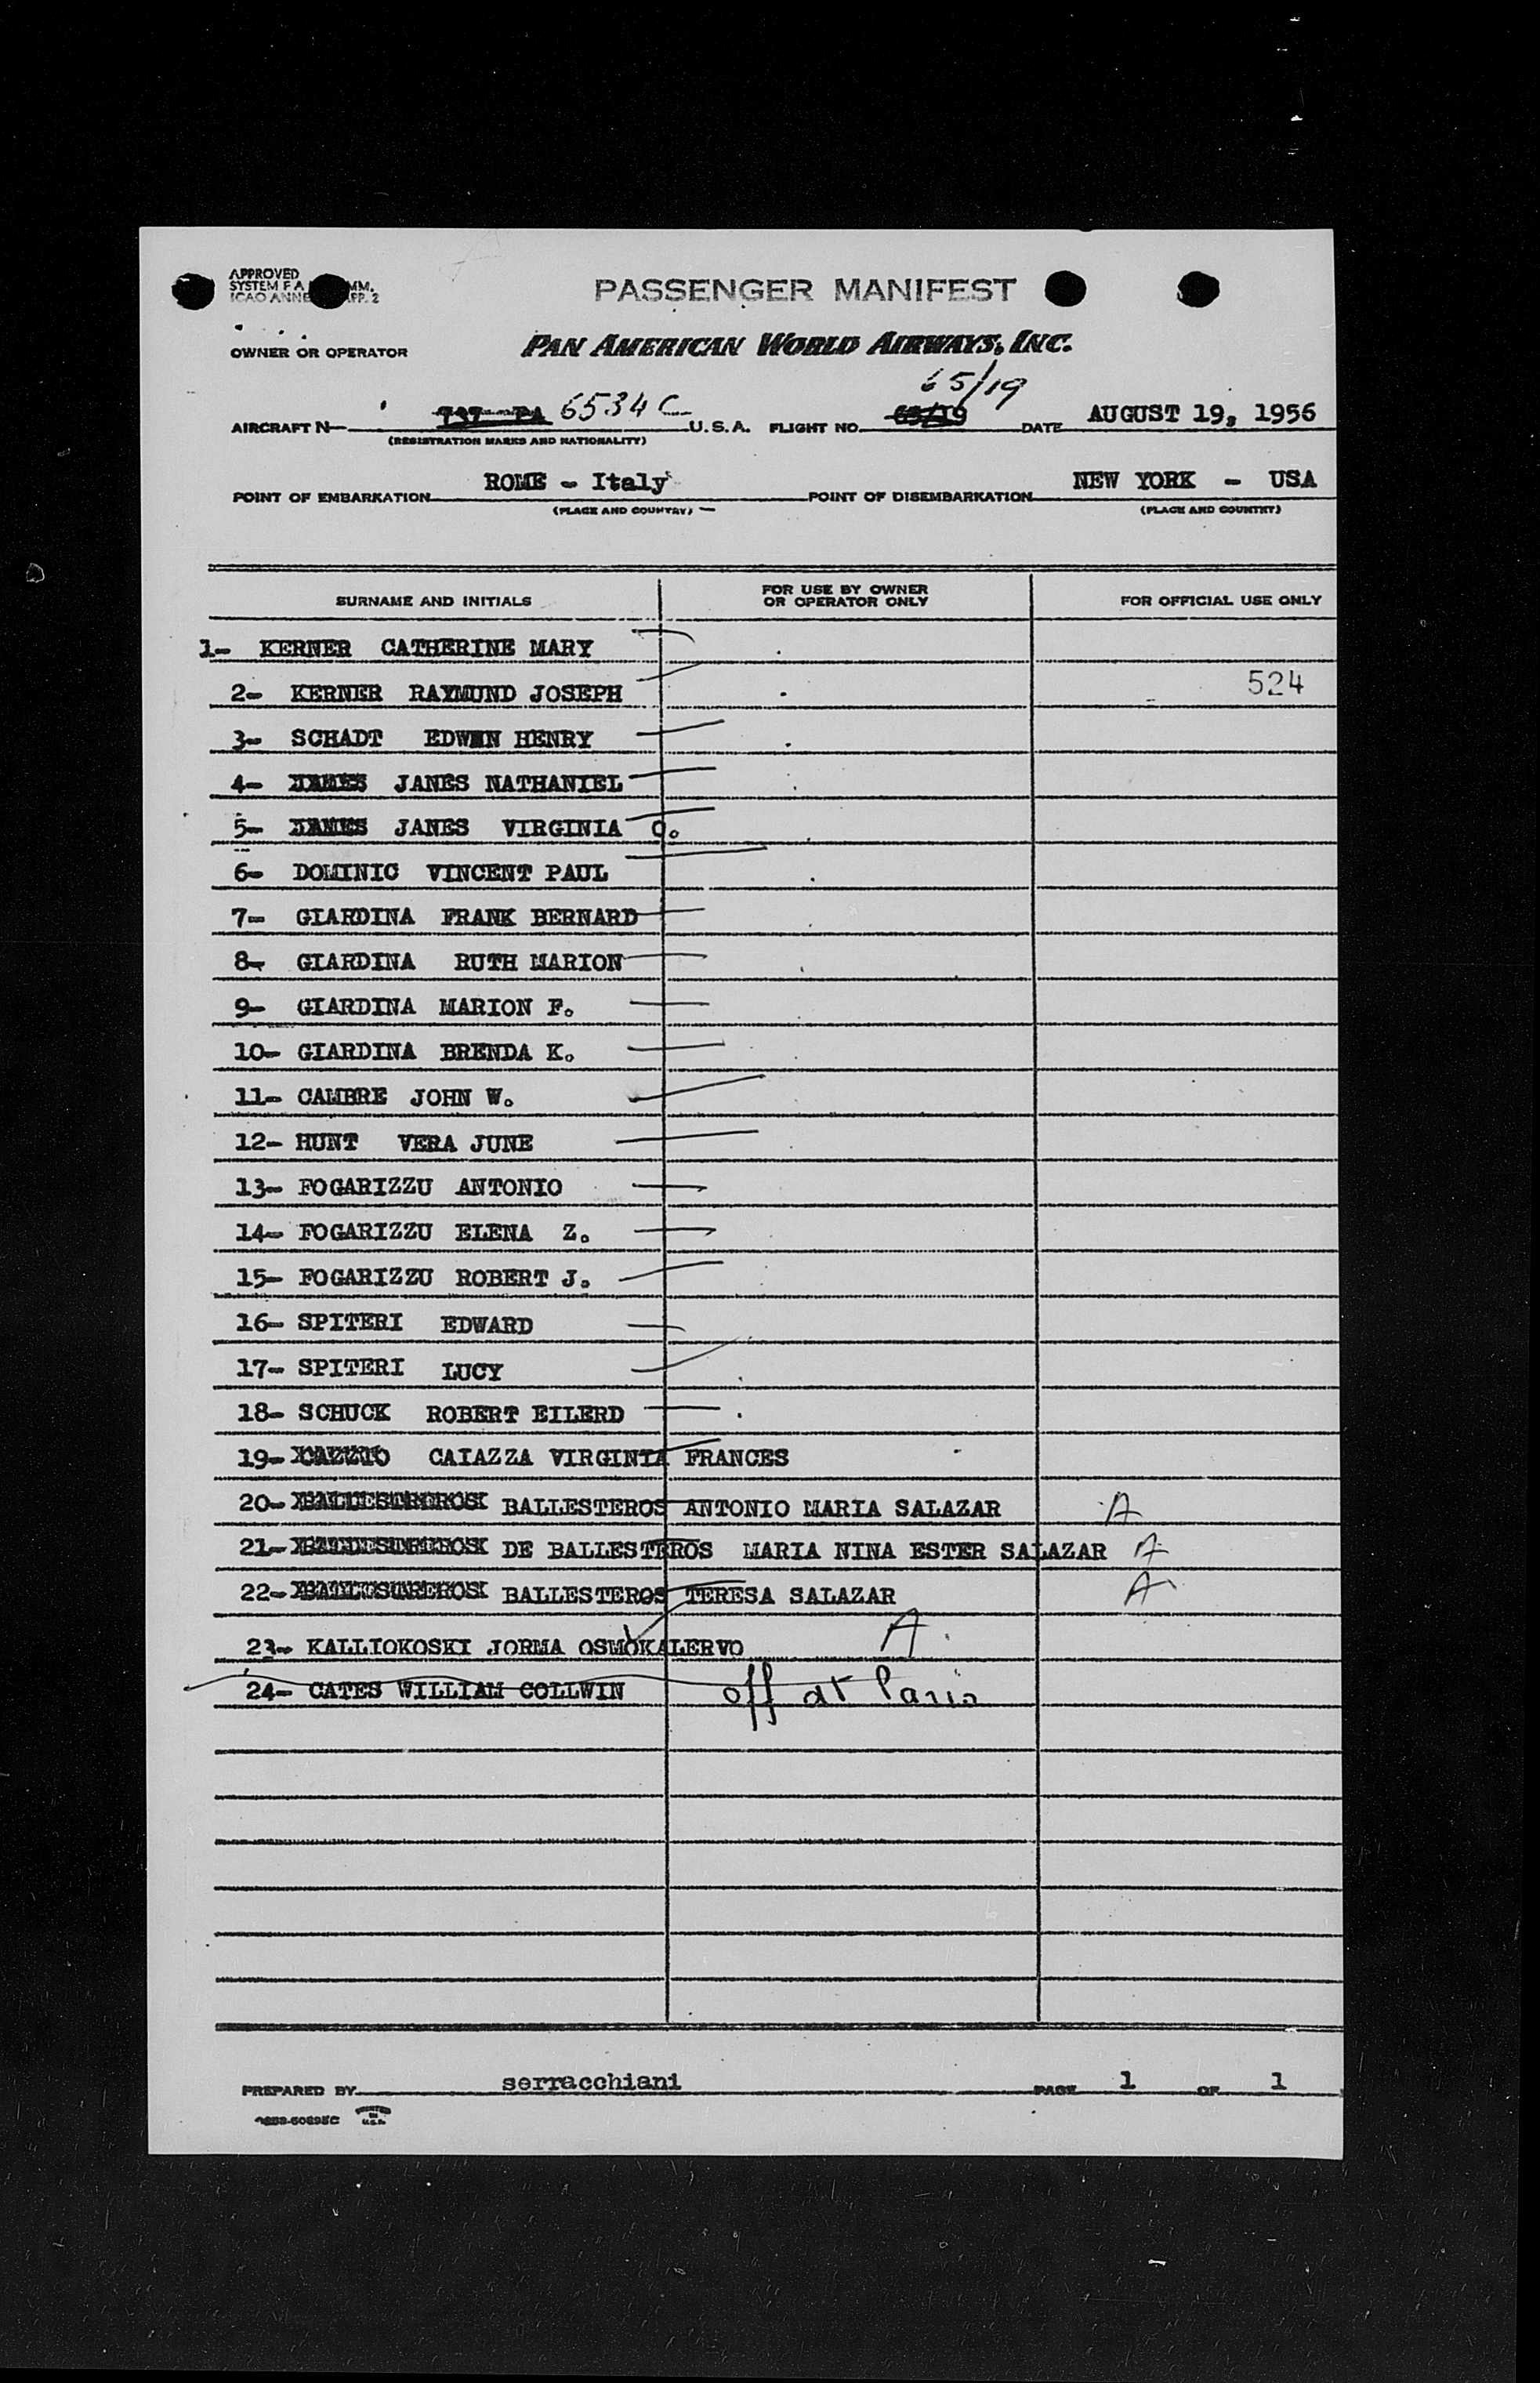 APPROVED
SYSTEM F A MM.
ICAO ANNE APP. 2
PASSENGER MANIFEST
OWNER OR OPERATOR PAN AMERICAN WORLD AIRWAYS, INC.
65/19
AIRCRAFT N 737 PA 6534C U.S.A. FLIGHT NO. 63/19 DATE AUGUST 19, 1956
(REGISTRATION MARKS AND NATIONALITY)
POINT OF EMBARKATION ROME - Italy POINT OF DISEMBARKATION NEW YORK - USA
(PLACE AND COUNTRY) (PLACE AND COUNTRY)
SURNAME AND INITIALS FOR USE BY OWNER OR OPERATOR ONLY FOR OFFICIAL USE ONLY
1- KERNER CATHERINE MARY
2- KERNER RAYMUND JOSEPH 524
3- SCHADT EDWIN HENRY
4- JAMES JANES NATHANIEL
5- JAMES JANES VIRGINIA O.
6- DOMINIC VINCENT PAUL
7- GIARDINA FRANK BERNARD
8- GIARDINA RUTH MARION
9- GIARDINA MARION F.
10- GIARDINA BRENDA K.
11- CAMBRE JOHN W.
12- HUNT VERA JUNE
13- FOGARIZZU ANTONIO
14- FOGARIZZU ELENA Z.
15- FOGARIZZU ROBERT J.
16- SPITERI EDWARD
17- SPITERI LUCY
18- SCHUCK ROBERT EILERD
19- CAIAZZA VIRGINIA FRANCES
20- BALLESTEROS ANTONIO MARIA SALAZAR A
21- DE BALLESTEROS MARIA NINA ESTER SALAZAR A
22- BALLESTEROS TERESA SALAZAR A
23- KALLIOKOSKI JORMA OSMOKALERVO A
24- CATES WILLIAM COLLWIN off at Paris
PREPARED BY serracchiani PAGE 1 OF 1
PRINTED IN U.S.A.